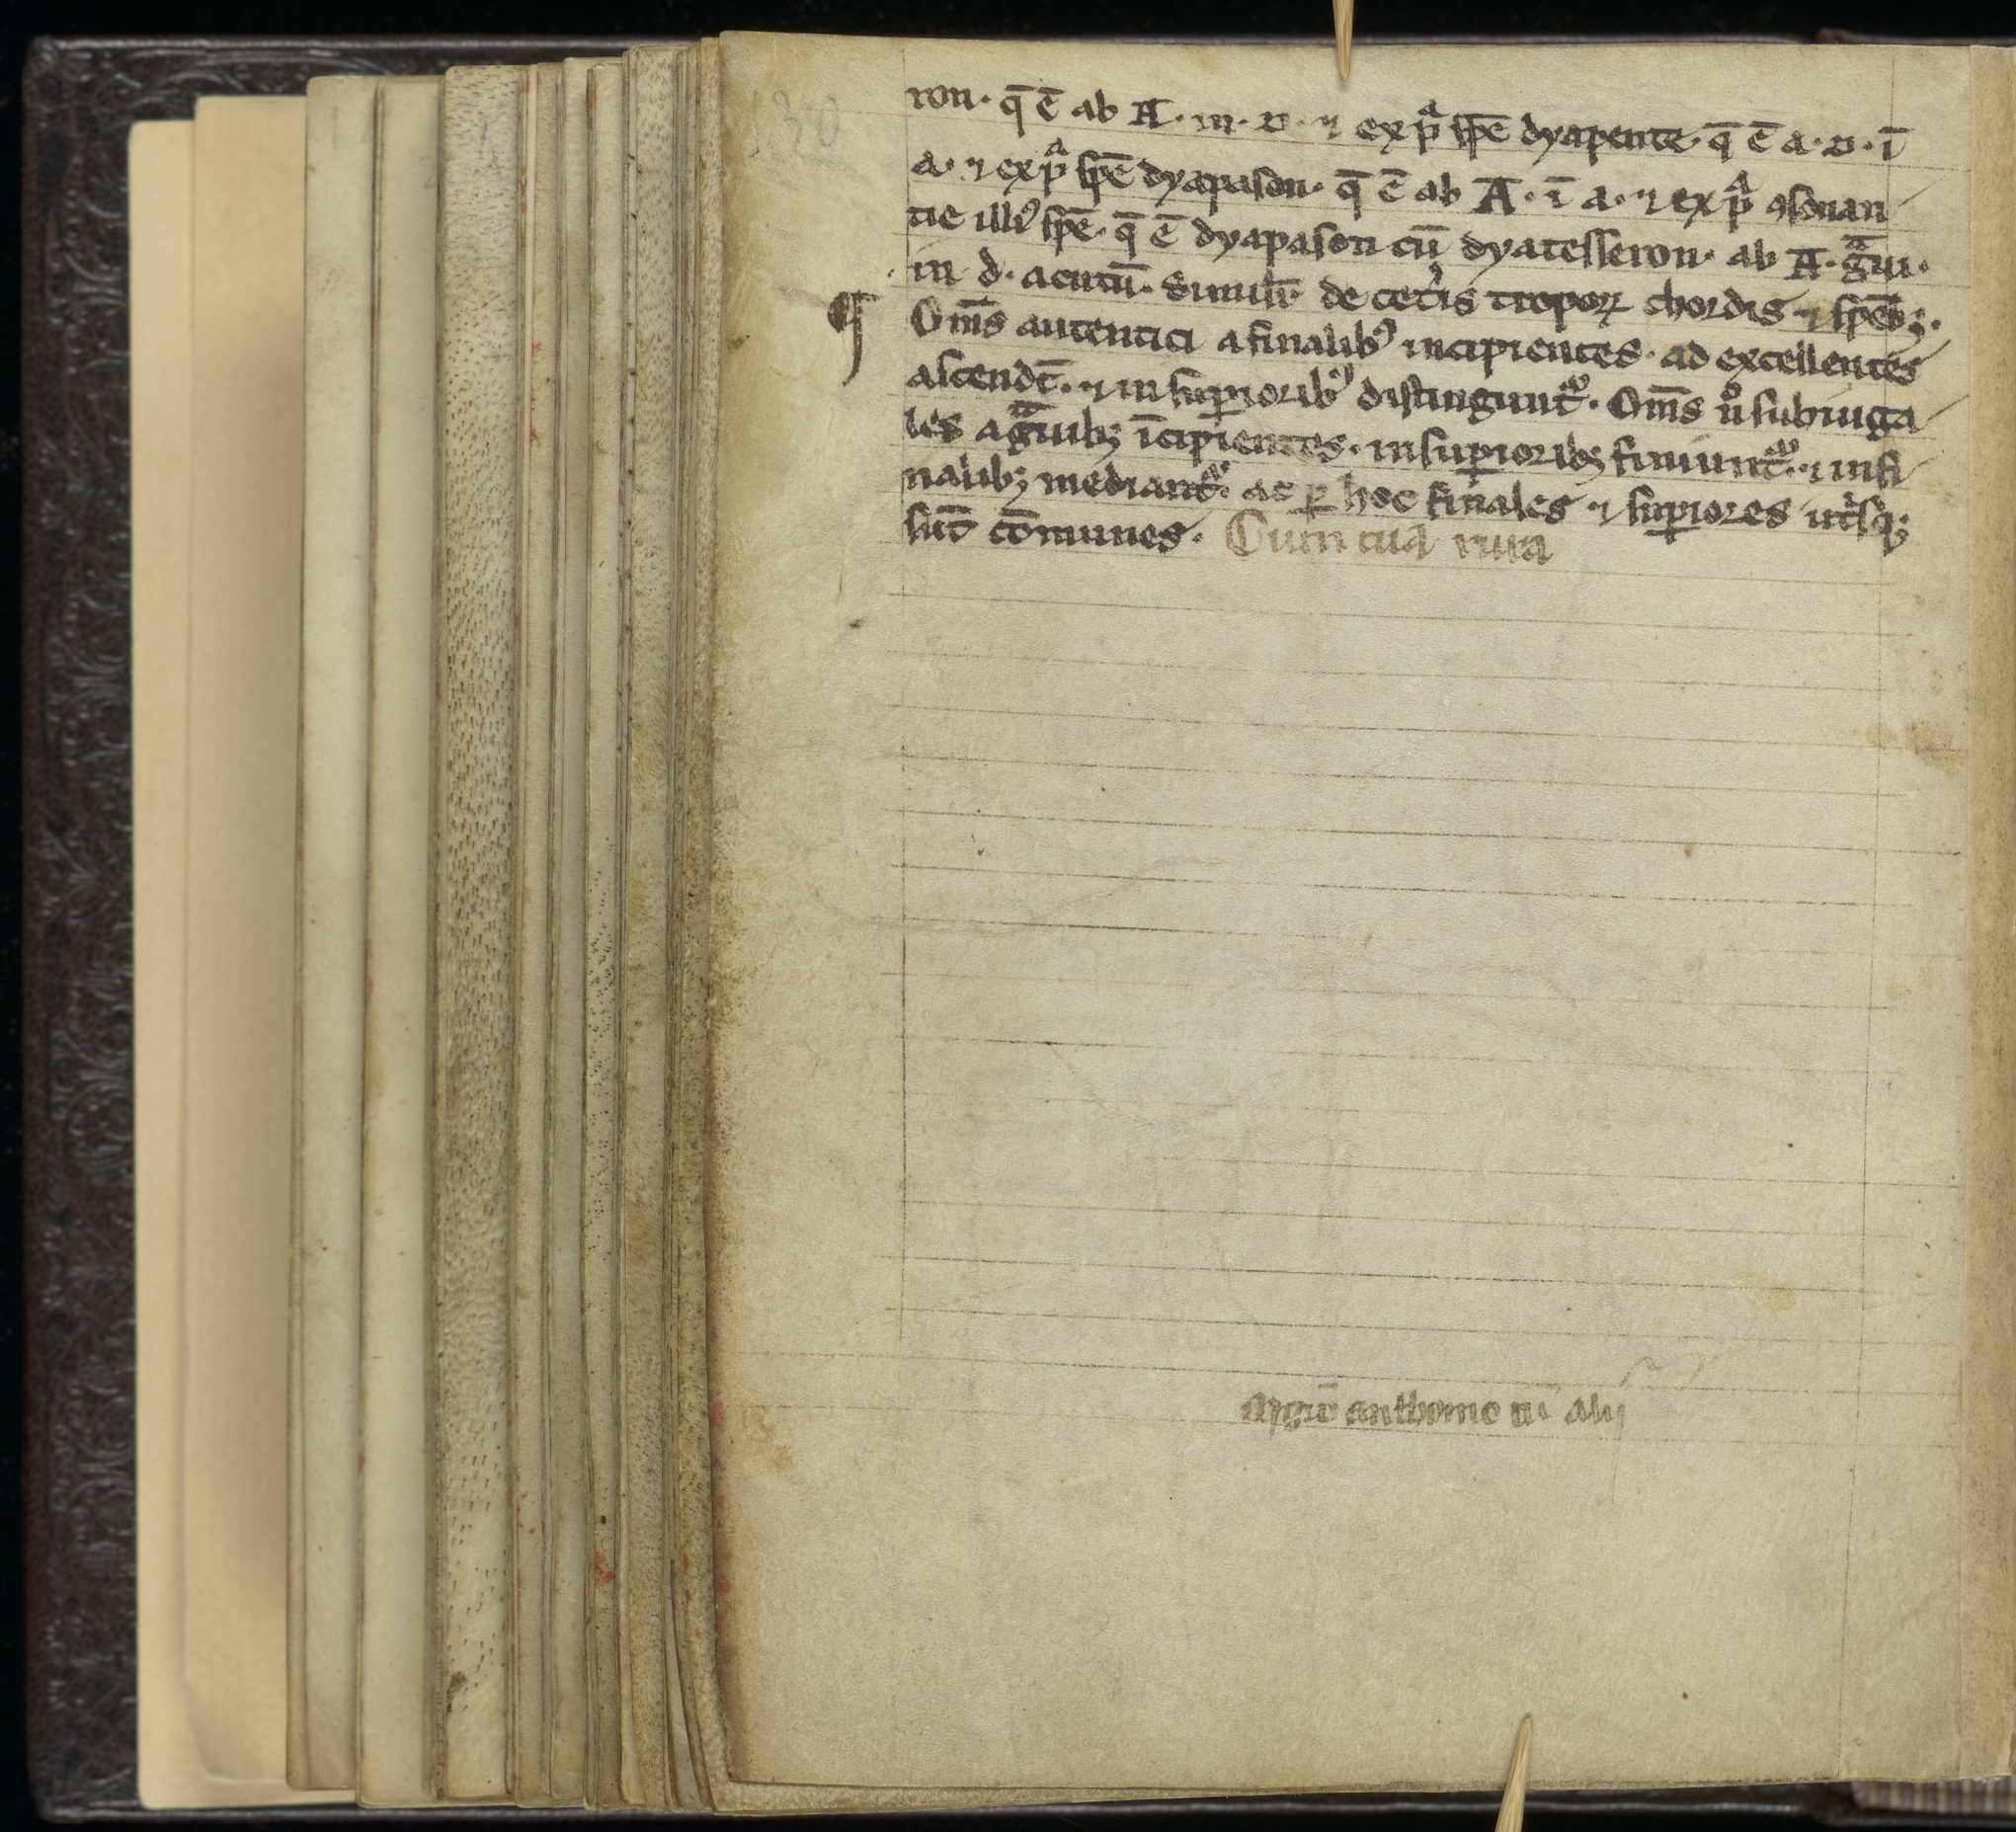 ron. q̄ ē ab A. in. D. ⁊ ex pͣ spē dyapente. q̄ ē a. D. ī
a. ⁊ ex pͣ spē dyapason. q̄ ē ab A. ī a. ⁊ ex pͣ ꝯsonan
tie illiꝰ spē. q̄ ē dyapason cū dyatesseron. ab A. gͣui.
in d. acutū. Similr̄ de cet͛is tropoꝝ chordis ⁊ spēbꝫ.
¶ Om̄s autentici a finalibꝰ incipientes. ad excellentes
ascendt̄. ⁊ in suꝑioribꝰ distingunt᷑. Om̄s ůo subiuga
les a gͣuibꝫ īcipientes. in suꝑioribꝫ finiunt᷑. ⁊ in fi
nalibꝫ mediant᷑. ac ꝑ hoc finales ⁊ suꝑiores ut͛sqꝫ
sūt cōmunes. Cum tua rura
anthonio alij